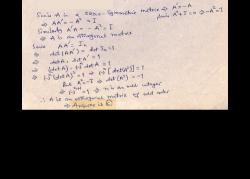 Since A is a skew-symmetric matrix ⇒ A' = -A
⇒ AA' = -A² = I
Since A²+I=0 ⇒ -A²=I
Similarly A'A = -A² = I
⇒ A is an orthogonal matrix
Since AA' = In
⇒ det(AA') = det In = 1
⇒ detA · detA' = 1
⇒ (detA) (-1)ⁿ detA = 1
⇒ (-1)ⁿ (detA)² = 1 ⇒ (-1)ⁿ [det(A²)] = 1
But A² = -I ⇒ det(A²) = -1
⇒ n is an odd integer
∴ A is an orthogonal matrix of odd order
⇒ Answer is